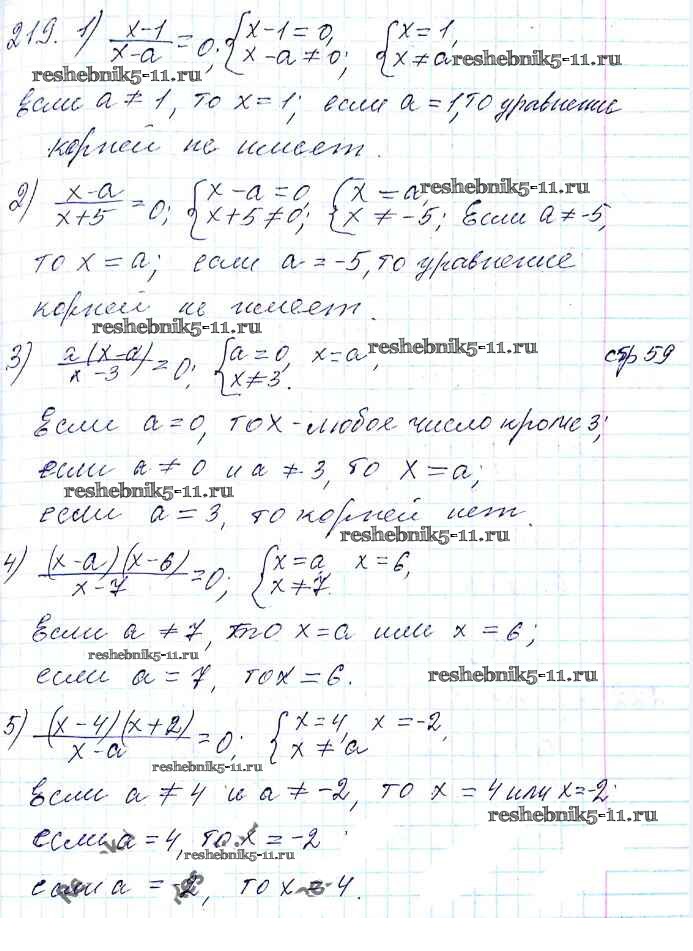 219. 1) x-1/x-a = 0; { x-1=0, x-a≠0; { x=1, x≠a
reshebnik5-11.ru reshebnik5-11.ru
Если a≠1, то x=1; если a=1, то уравнение
корней не имеет.
2) x-a/x+5 = 0; { x-a=0, x+5≠0; { x=a, x≠-5; Если a≠-5,
reshebnik5-11.ru
то x=a; если a=-5, то уравнение
корней не имеет.
reshebnik5-11.ru
3) a(x-a)/x-3 = 0; { a=0, x=a, x≠3.
reshebnik5-11.ru стр 59
Если a=0, то x-любое число кроме 3;
если a≠0 и a≠3, то x=a;
reshebnik5-11.ru
если a=3, то корней нет.
reshebnik5-11.ru
4) (x-a)(x-6)/x-7 = 0; { x=a, x=6, x≠7.
Если a≠7, то x=a или x=6;
reshebnik5-11.ru
если a=7, то x=6.
reshebnik5-11.ru
5) (x-4)(x+2)/x-a = 0; { x=4, x=-2, x≠a
reshebnik5-11.ru
Если a≠4 и a≠-2, то x=4 или x=-2.
reshebnik5-11.ru
если a=4, то x=-2
reshebnik5-11.ru
если a = 2, то x=4.